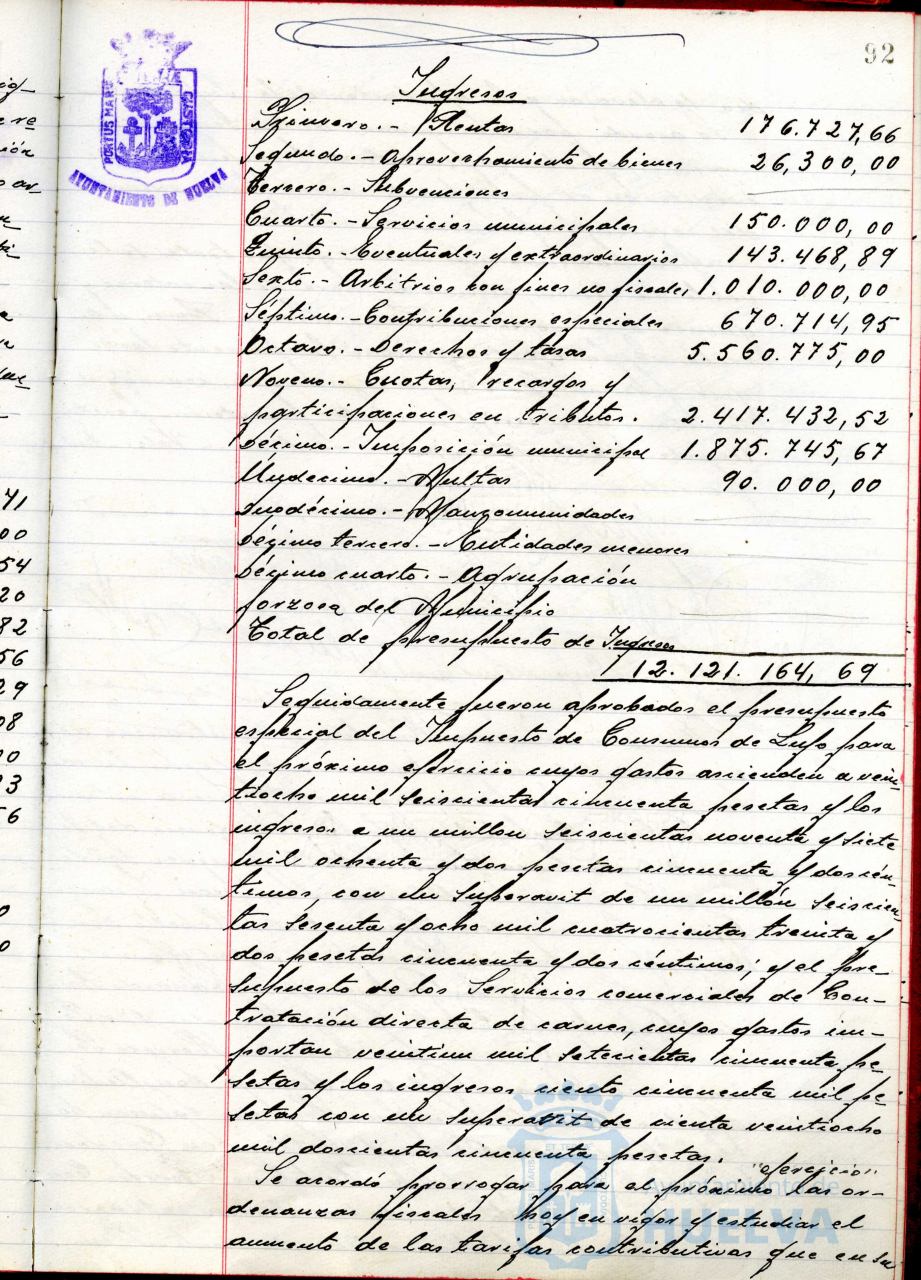 92
PORTUS MARIS
CUSTODIA
AYUNTAMIENTO DE HUELVA
Ingresos
Primero.- Rentas 176.727,66
Segundo.- Aprovechamiento de bienes 26,300,00
Tercero.- Subvenciones
Cuarto.- Servicios municipales 150.000,00
Quinto.- Eventuales y extraordinarios 143.468,89
Sexto.- Arbitrios con fines no fiscales 1.010.000,00
Séptimo.- Contribuciones especiales 670.714,95
Octavo.- Derechos y tasas 5.560.775,00
Noveno.- Cuotas, recargos y
participaciones en tributos. 2.417.432,52
Décimo.- Imposición municipal 1.875.745,67
Undecimo.- Multas 90.000,00
Duodécimo.- Mancomunidades
Décimo tercero.- Entidades menores
Décimo cuarto.- Agrupación
forzosa del Municipio
Total de presupuesto de Ingresos
12.121.164,69
Seguidamente fueron aprobados el presupuesto
especial del Impuesto de Consumos de Lujo para
el próximo ejercicio cuyos gastos ascienden a vein-
tiocho mil seiscientas cincuenta pesetas y los
ingresos a un millon seiscientas noventa y siete
mil ochenta y dos pesetas cincuenta y dos cén-
timos, con un superavit de un millón seiscien-
tas sesenta y ocho mil cuatrocientas treinta y
dos pesetas cincuenta y dos céntimos; y el pre-
supuesto de los Servicios comerciales de Con-
tratación directa de carnes, cuyos gastos im-
portan veintiun mil setecientas cincuenta pe-
setas y los ingresos ciento cincuenta mil pe-
setas con un superavit de cienta veintiocho
mil doscientas cincuenta pesetas.
"ejercicio"
Se acordó prorrogar para el próximo las or-
denanzas fiscales hoy en vigor y estudiar el
aumento de las tarifas contributivas que en su
Ayuntamiento de
HUELVA
71
00
54
20
82
56
29
08